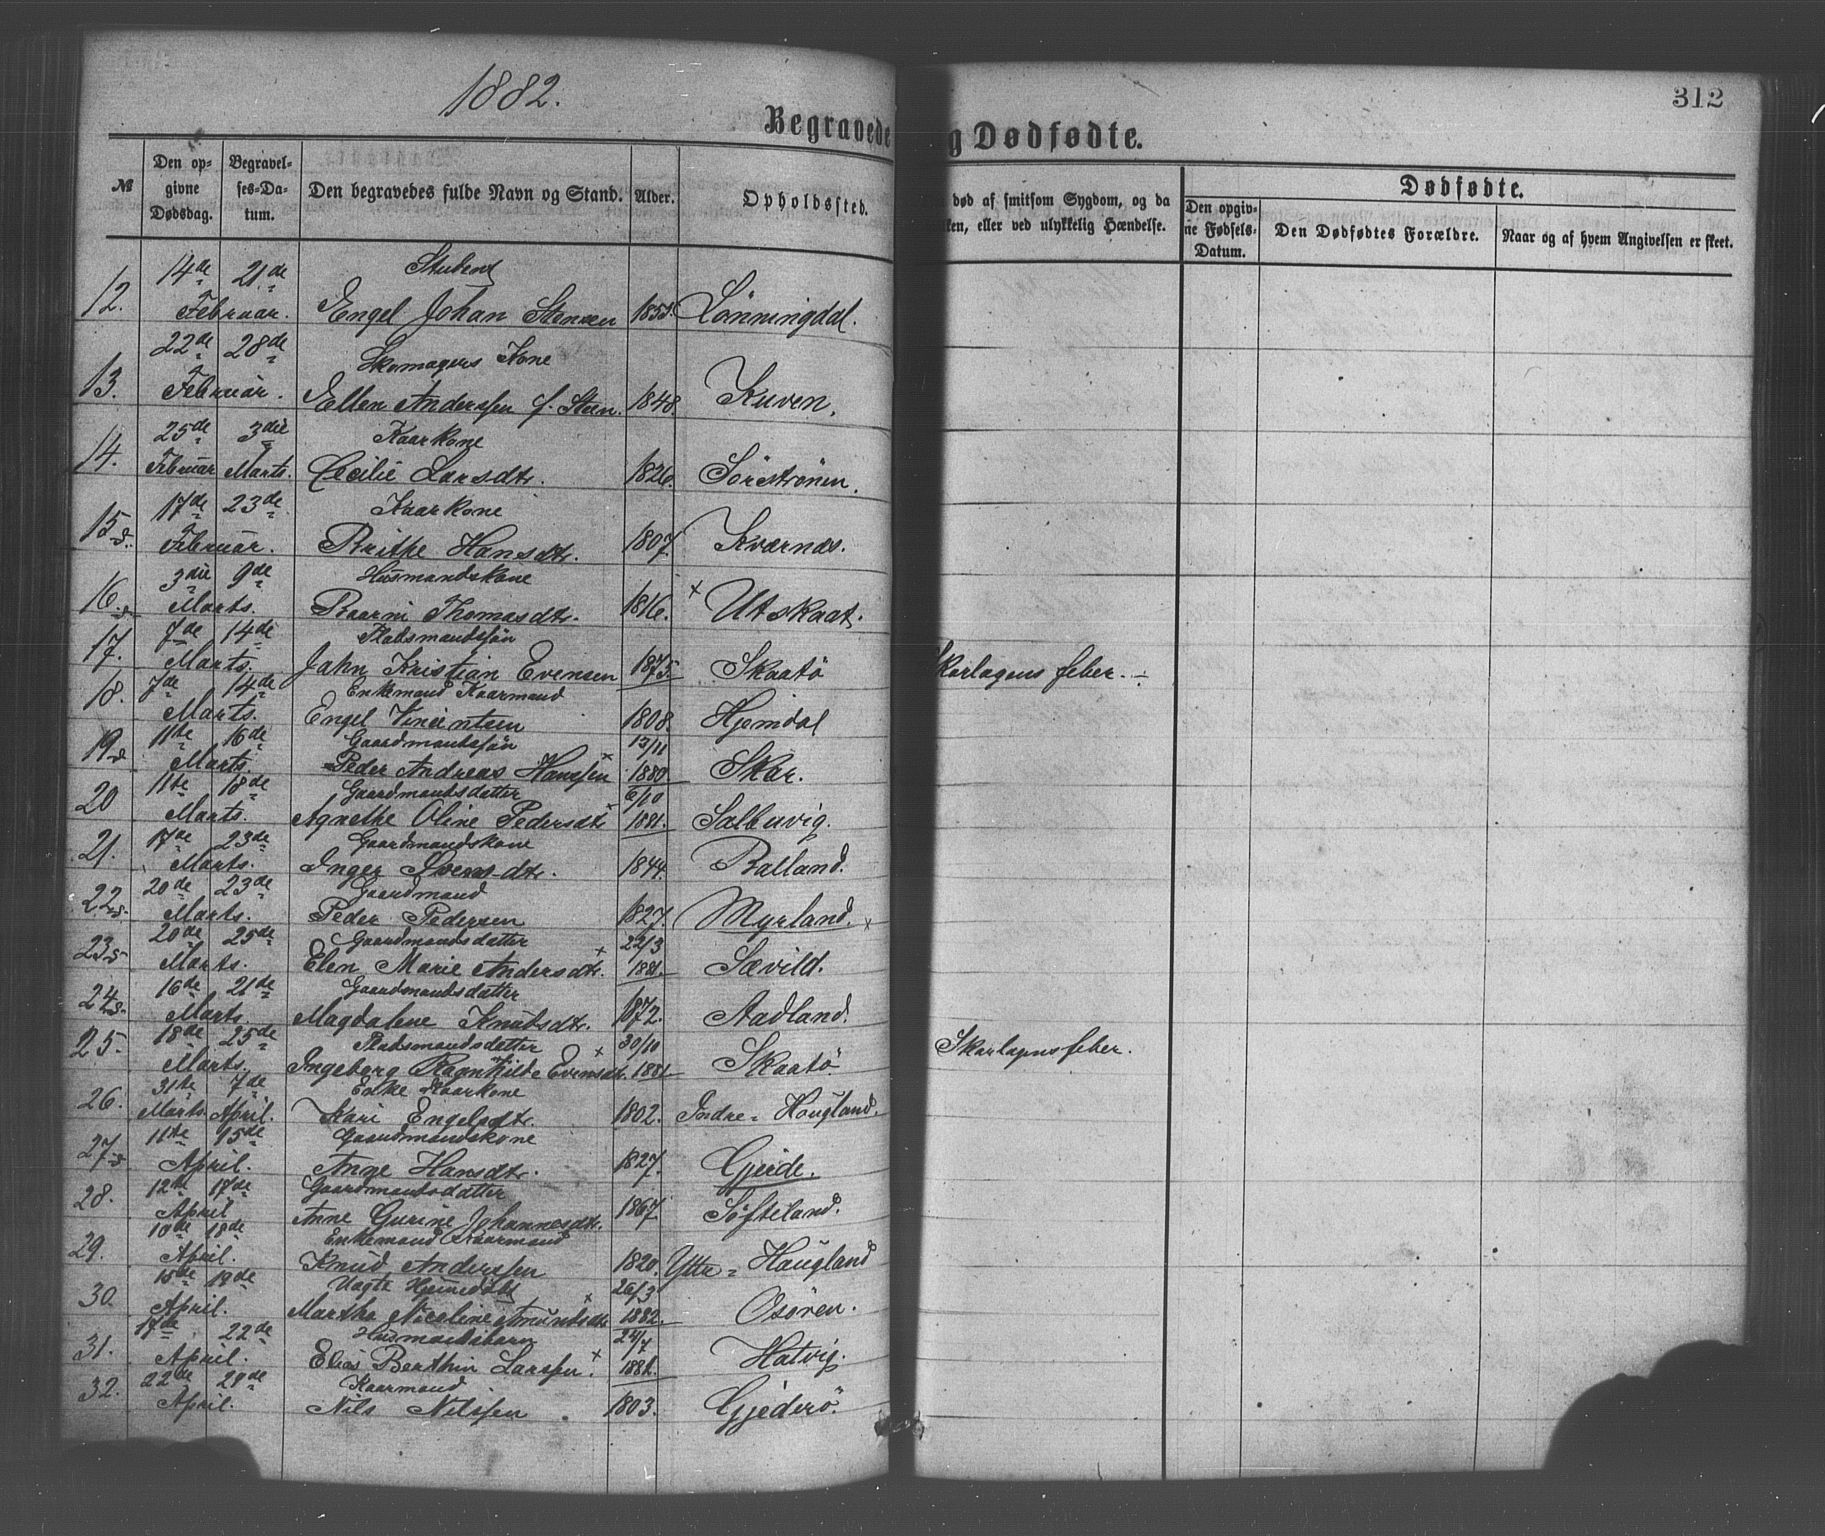 1882.
312
Begravede
g Dødfødte.
№
Den op-
givne
Dødsdag.
Begravel-
ses-Da-
tum.
Den begravedes fulde Navn og Stand.
Alder.
Opholdssted.
død af smitsom Sygdom, og da
ken, eller ved ulykkelig Hændelse.
Dødfødte.
Den opgiv-
ne Fødsels-
Datum.
Den Dødfødtes Forældre.
Naar og af hvem Angivelsen er skeet.
14de 21de Student
12. Februar. Engel Johan Stensen 1855. Lønningdal.
22de 28de Skomagers Kone
13. Februar. Ellen Anderssen f. Steen. 1848. Kuven.
25de 3die Kaarkone
14. Februar Marts. Cecilie Larsdtr. 1826. Sörströnen.
17de 23de Kaarkone
15. Februar. Brithe Hansdtr. 1807 Kværnæs.
3die 9de Husmandskone
16. Marts. Baarni Thomasdtr. 1816. × Utskaat.
7de 14de Pladsmandssøn
17. Marts. Jahn Kristian Evensen 1875. Skaatö Skarlagens feber.
7de 14de Enkemand Kaarmand
18. Marts. Engel Vincintsen 1808. Hjemdal
11te 16de Gaardmandssøn 13/11
19 Marts Peder Andreas Hanssen 1880 Skar.
11te 18de Gaardmandsdatter 6/10
20 Marts. Agnethe Oline Pedersdtr 1881. Salbuvig.
17de 23de Gaardmandskone
21. Marts. Inger Svensdtr. 1844. Balland.
20de 23de Gaardmand
22. Marts. Peder Pedersen 1827. Myrland. ×
20de 25de Gaardmandsdatter 22/3
23. Marts. Elen Marie Andersdtr. × 1881. Sævild.
16de 21de Gaardmandsdatter
24. Marts. Magdalene Knudsdtr. 1872. Aadland.
18de 25de Pladsmandsdatter 30/10
25. Marts. Ingeborg Ragnhilde Evensdt. × 1881 Skaatö Skarlagensfeber.
31te 7de Enke Kaarkone
26. Marts April. Kari Engelsdtr. 1802. Indre = Hougland.
11te 15de Gaardmandskone
27. April. Ange Hansdtr. 1827. Gjerde.
12te 17de Gaardmandsdatter
28. April Anne Gurine Johannesdtr. 1867 Söfteland.
10de 18de Enkemand Kaarmand
29. April. Knud Anderssen 1820. Ytre = Haugland
15de 19de Uagte Hjemedöbt 26/3
30. April. Martha Nicoline Amundsdtr × 1882. Osören.
17de 22de Husmandsbarn 24/7
31. April. Elias Berthin Larssen. × 1881. Hatvig.
22de 29de Kaarmand
32. April. Nils Nilssen 1803. Gjederö.